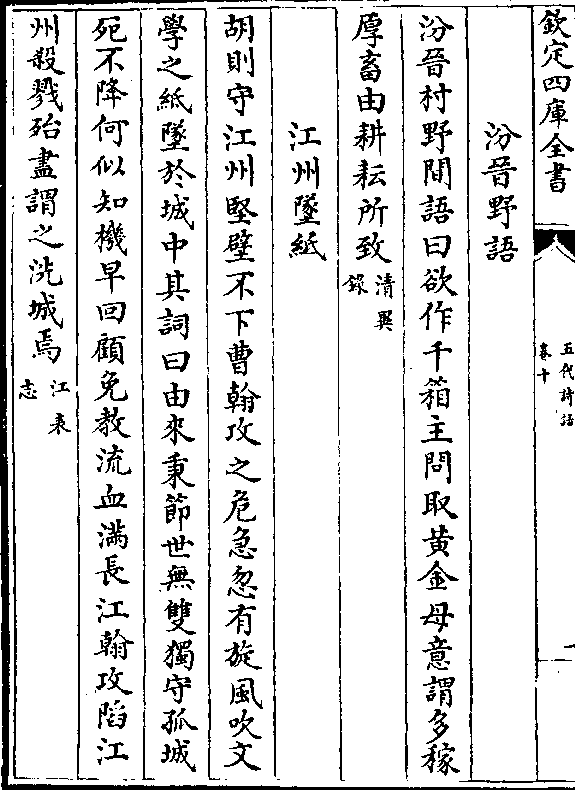 欽定四庫全書
五代詩話
卷十
汾晉野語
汾晉村野間語曰欲作千箱主問取黃金母意謂多稼
厚畜由耕耘所致清異
錄
江州墜紙
胡則守江州堅壁不下曹翰攻之危急忽有旋風吹文
學之紙墜於城中其詞曰由來秉節世無雙獨守孤城
死不降何似知機早回顧免教流血滿長江翰攻陷江
州殺戮殆盡謂之洗城焉江表
志